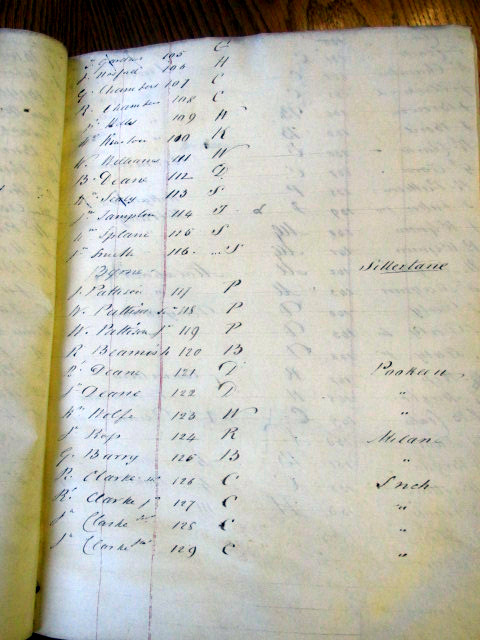 Gardner 105 G
106 H
G. Chambers 107 C
R. Chambers 108 C
109 H
K
Wm Williams 111 W
B. Deane 112 D
113 S
Jn Tamplin 114 T
Wm Splane 115 S
Jn Smith 116 S
Byrne Sillertane
J. Pattison 117 P
W. Pattison Sr 118 P
W. Pattison Jr 119 P
R Beamish 120 B
Deane 121 D
Jn Deane 122 D "
Wm Wolfe 123 W "
Jn Ross 124 R Milane
G. Barry 125 B "
Rt Clarke Sr 126 C Inch
Rt Clarke Jr 127 C "
Jn Clarke Sr 128 C "
Jn Clarke Jr 129 C "